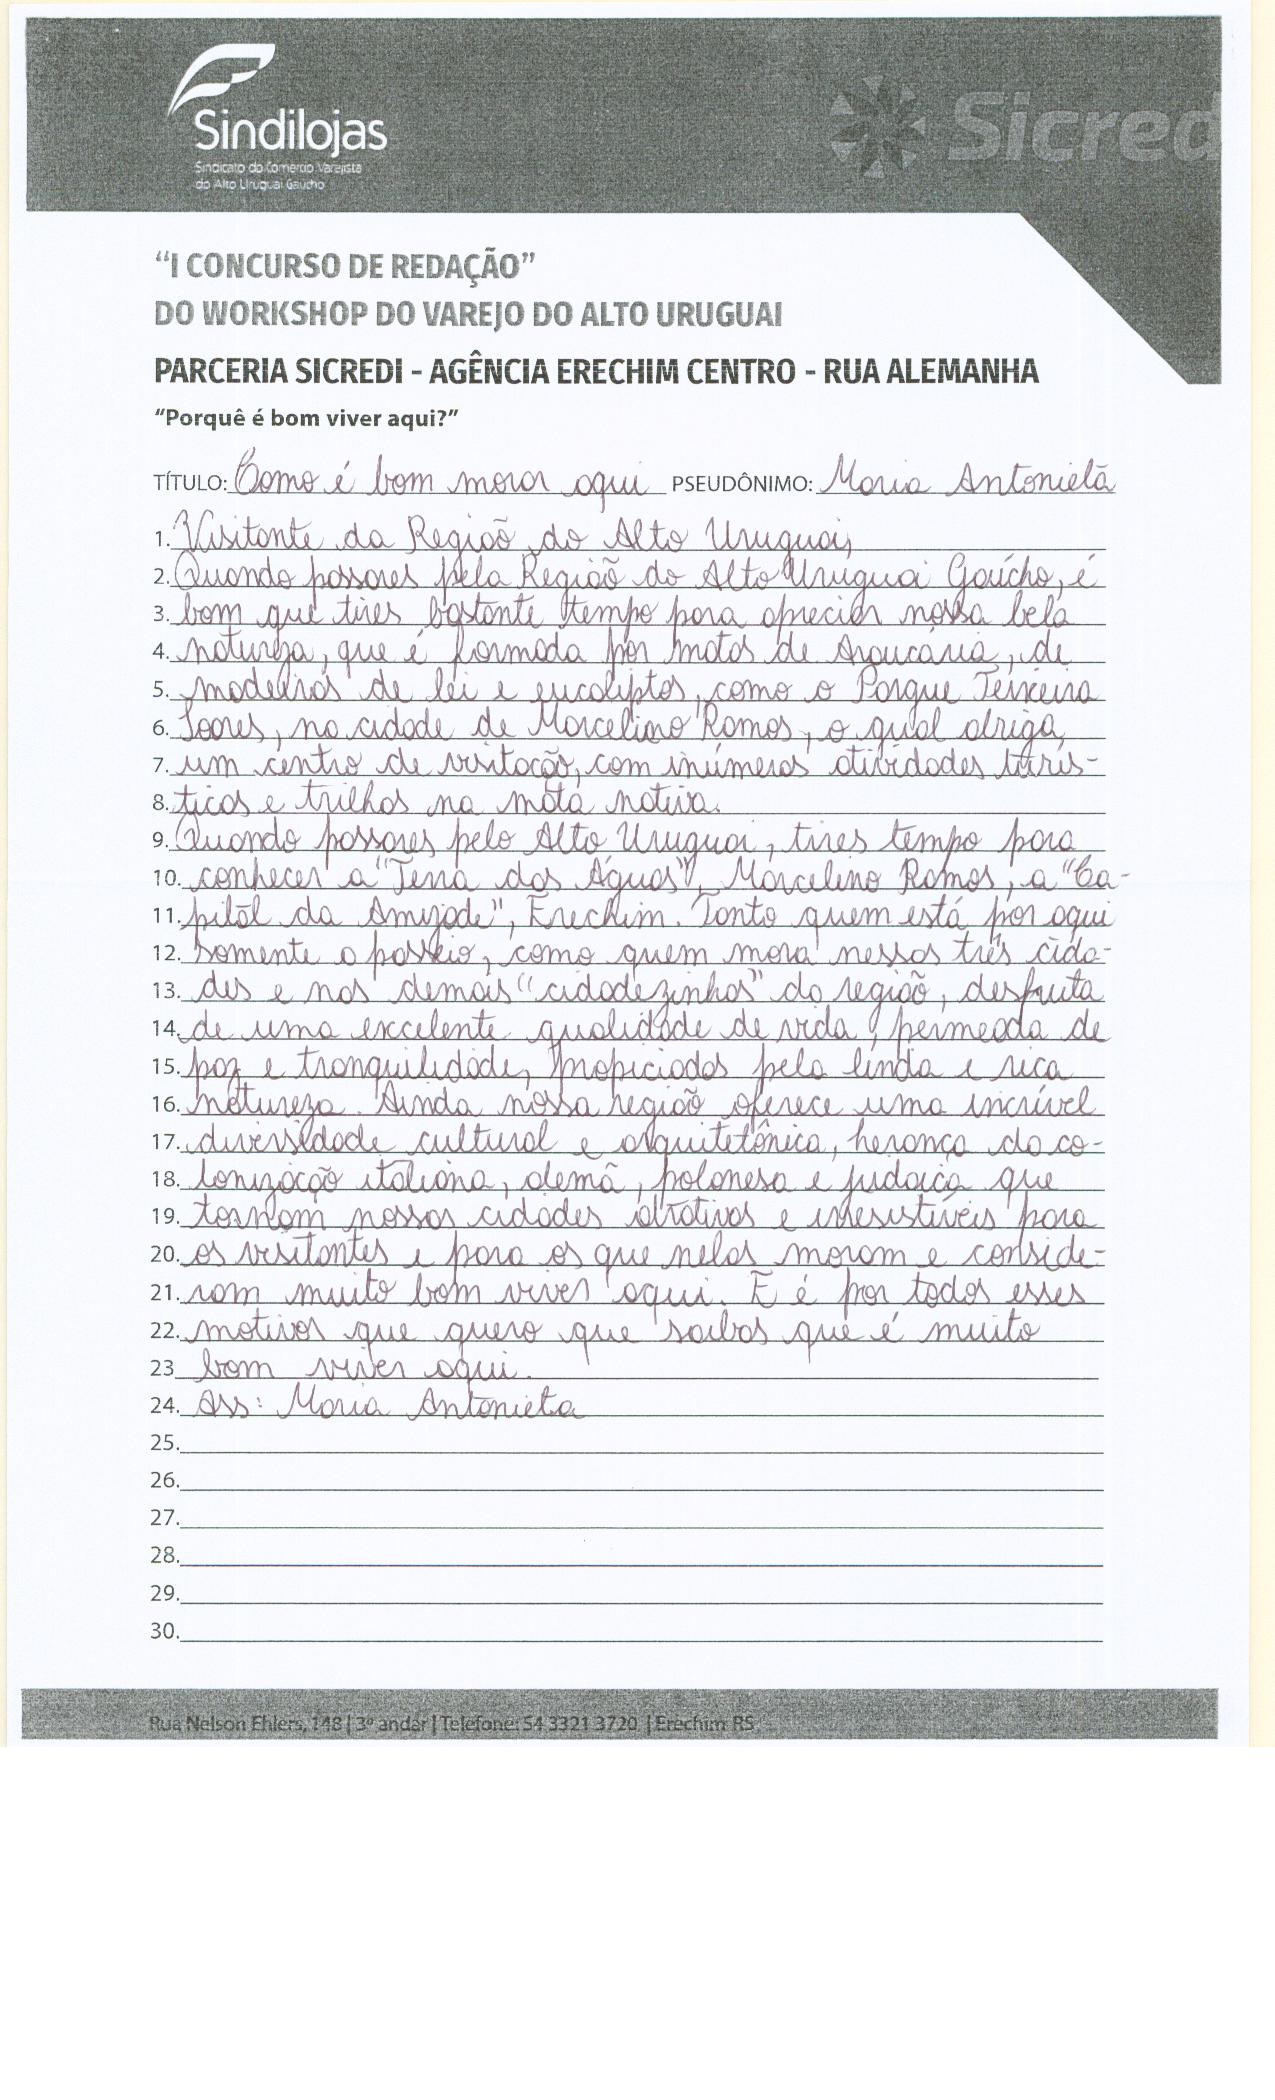 Sindilojas
Sindicato do Comércio Varejista
do Alto Uruguai Gaúcho
Sicred
“I CONCURSO DE REDAÇÃO”
DO WORKSHOP DO VAREJO DO ALTO URUGUAI
PARCERIA SICREDI - AGÊNCIA ERECHIM CENTRO - RUA ALEMANHA
“Porquê é bom viver aqui?”
TÍTULO: Como é bom morar aqui PSEUDÔNIMO: Maria Antonieta
1. Visitante da Região do Alto Uruguai,
2. Quando passares pela Região do Alto Uruguai Gaúcho, é
3. bom que tires bastante tempo para apreciar nossa bela
4. natureza, que é formada por matas de Araucária, de
5. madeiras de lei e eucaliptos, como o Parque Teixeira
6. Soares, na cidade de Marcelino Ramos, o qual abriga
7. um centro de visitação, com inúmeras atividades turís-
8. ticas e trilhas na mata nativa.
9. Quando passares pelo Alto Uruguai, tires tempo para
10. conhecer a "Terra das Águas", Marcelino Ramos, a "Ca-
11. pital da Amizade", Erechim. Tanto quem está por aqui
12. somente a passeio, como quem mora nessas três cida-
13. des e nas demais "cidadezinhas" da região, desfruta
14. de uma excelente qualidade de vida, permeada de
15. paz e tranquilidade, propiciados pela linda e rica
16. natureza. Ainda nossa região oferece uma incrível
17. diversidade cultural e arquitetônica, herança da co-
18. lonização italiana, alemã, polonesa e judaica que
19. tornam nossas cidades atrativas e irresistíveis para
20. os visitantes e para os que nelas moram e conside-
21. ram muito bom viver aqui. E é por todos esses
22. motivos que quero que saibas que é muito
23. bom viver aqui.
24. Ass: Maria Antonieta
25.
26.
27.
28.
29.
30.
Rua Nelson Ehlers, 148 | 3º andar | Telefone: 54 3321 3720 | Erechim RS